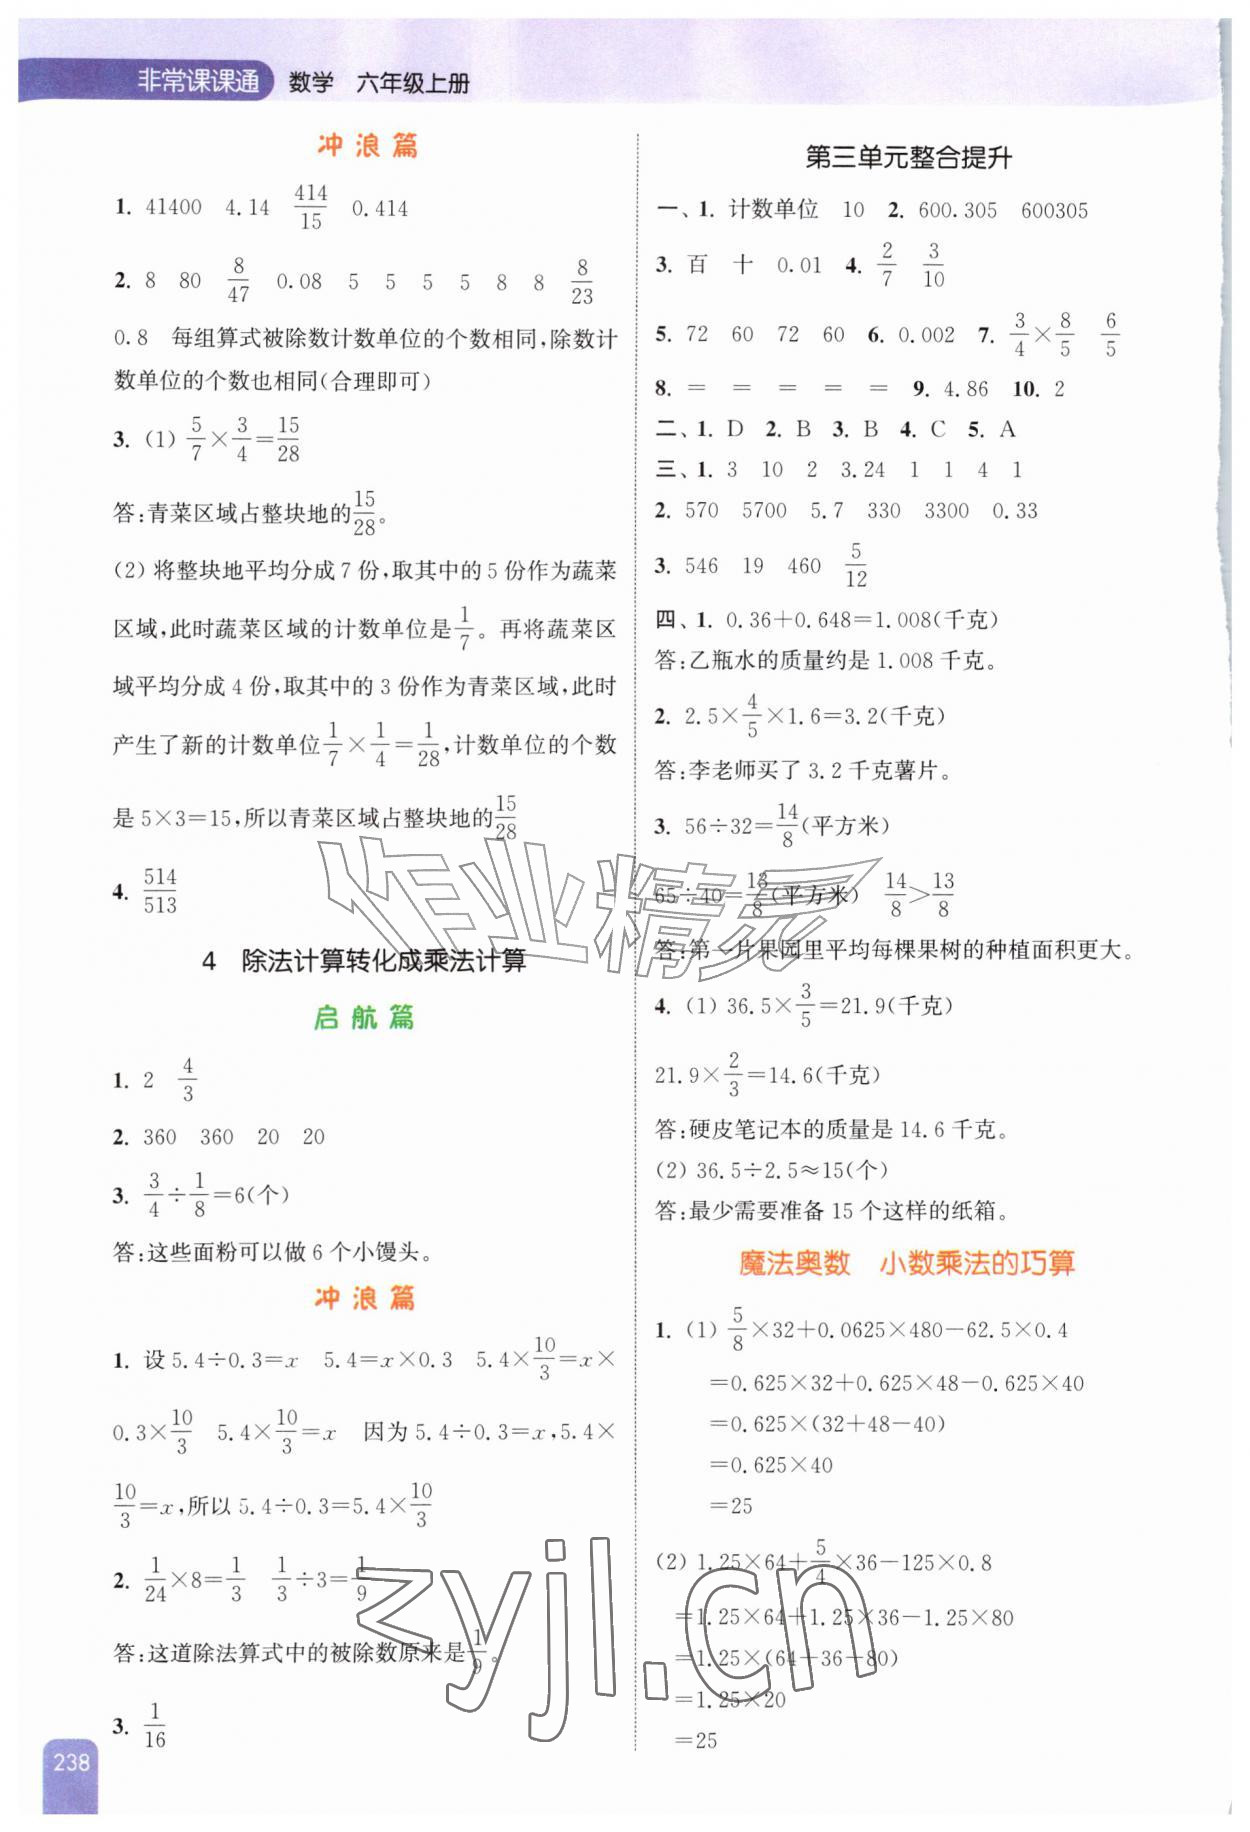 非常课课通 数学 六年级上册
冲浪篇
1. 41400 4.14 414/15 0.414
2. 8 80 8/47 0.08 5 5 5 5 8 8 8/23
0.8 每组算式被除数计数单位的个数相同,除数计
数单位的个数也相同(合理即可)
3. (1) 5/7×3/4=15/28
答:青菜区域占整块地的15/28。
(2) 将整块地平均分成7份,取其中的5份作为蔬菜
区域,此时蔬菜区域的计数单位是1/7。再将蔬菜区
域平均分成4份,取其中的3份作为青菜区域,此时
产生了新的计数单位1/7×1/4=1/28,计数单位的个数
是5×3=15,所以青菜区域占整块地的15/28
4. 514/513
4 除法计算转化成乘法计算
启航篇
1. 2 4/3
2. 360 360 20 20
3. 3/4÷1/8=6(个)
答:这些面粉可以做6个小馒头。
冲浪篇
1. 设5.4÷0.3=x 5.4=x×0.3 5.4×10/3=x×
0.3×10/3 5.4×10/3=x 因为5.4÷0.3=x,5.4×
10/3=x,所以5.4÷0.3=5.4×10/3
2. 1/24×8=1/3 1/3÷3=1/9
答:这道除法算式中的被除数原来是1/9。
3. 1/16
238
第三单元整合提升
一、1. 计数单位 10 2. 600.305 600305
3. 百 十 0.01 4. 2/7 3/10
5. 72 60 72 60 6. 0.002 7. 3/4×8/5 6/5
8. = = = = = 9. 4.86 10. 2
二、1. D 2. B 3. B 4. C 5. A
三、1. 3 10 2 3.24 1 1 4 1
2. 570 5700 5.7 330 3300 0.33
3. 546 19 460 5/12
四、1. 0.36+0.648=1.008(千克)
答:乙瓶水的质量约是1.008千克。
2. 2.5×4/5×1.6=3.2(千克)
答:李老师买了3.2千克薯片。
3. 56÷32=14/8(平方米)
65÷40=13/8(平方米) 14/8>13/8
答:第一片果园里平均每棵果树的种植面积更大。
4. (1) 36.5×3/5=21.9(千克)
21.9×2/3=14.6(千克)
答:硬皮笔记本的质量是14.6千克。
(2) 36.5÷2.5≈15(个)
答:最少需要准备15个这样的纸箱。
魔法奥数 小数乘法的巧算
1. (1) 5/8×32+0.0625×480-62.5×0.4
=0.625×32+0.625×48-0.625×40
=0.625×(32+48-40)
=0.625×40
=25
(2) 1.25×64+5/4×36-125×0.8
=1.25×64+1.25×36-1.25×80
=1.25×(64+36-80)
=1.25×20
=25
作业精灵
zyjl.cn